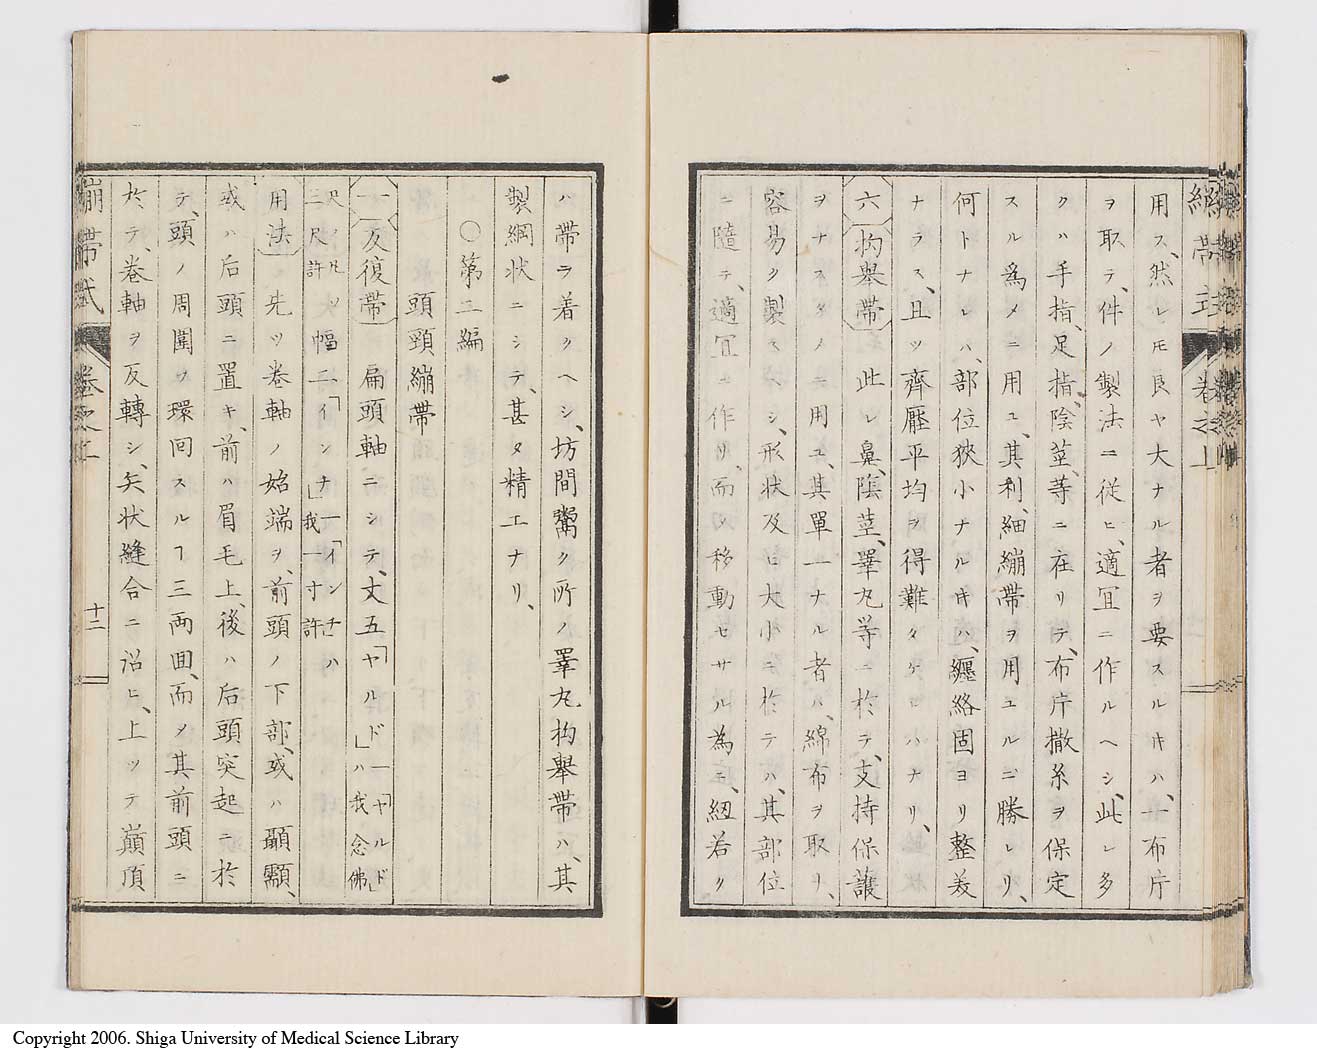 繃帯式 巻之上
用ス、然レ𪜈良ヤ大ナル者ヲ要スルキハ、布片
ヲ取テ、件ノ製法ニ従ヒ、適宜ニ作ルヘシ、此レ多
クハ手指、足指、陰莖、等ニ在リテ、布片撒糸ヲ保定
スル為メニ用ユ、其利、細繃帯ヲ用エルニ勝レリ、
何トナレハ、部位狹小ナルキハ、纒絡固ヨリ整美
ナラス、且ツ齊壓平均ヲ得難タケレハナリ、
六 拘擧帶 此レ鼻、陰莖、睪丸等ニ於テ、支持保護
ヲナスタメニ用ユ、其單一ナル者ハ、綿布ヲ取リ、
容易ク製スヘシ、形状及ヒ大小ニ於テハ、其部位
ニ隨テ、適宜ニ作リ、而シテ移動セサル為ニ、紐若ク
ハ帶ヲ着クヘシ、坊間鬻ク所ノ睪丸拘擧帶ハ、其
製綱状ニシテ、甚タ精工ナリ、
〇第二編
頭頸繃帯
一 反復帶 扁頭軸ニシテ、丈五「ヤルド」一「ヤルド」ハ我念佛
尺ノ凡ソ二尺許幅二「インチ」一「インチ」ハ我一寸許
用法 先ツ巻軸ノ始端ヲ、前頭ノ下部、或ハ顳顬、
或ハ后頭ニ置キ、前ハ眉毛上、後ハ后頭突起ニ於
テ、頭ノ周圍ヲ環回スルヿ三兩回、而シテ其前頭ニ
於テ、巻軸ヲ反轉シ、矢状縫合ニ沿ヒ、上ツテ巓頂
繃帯式 巻之上 十二